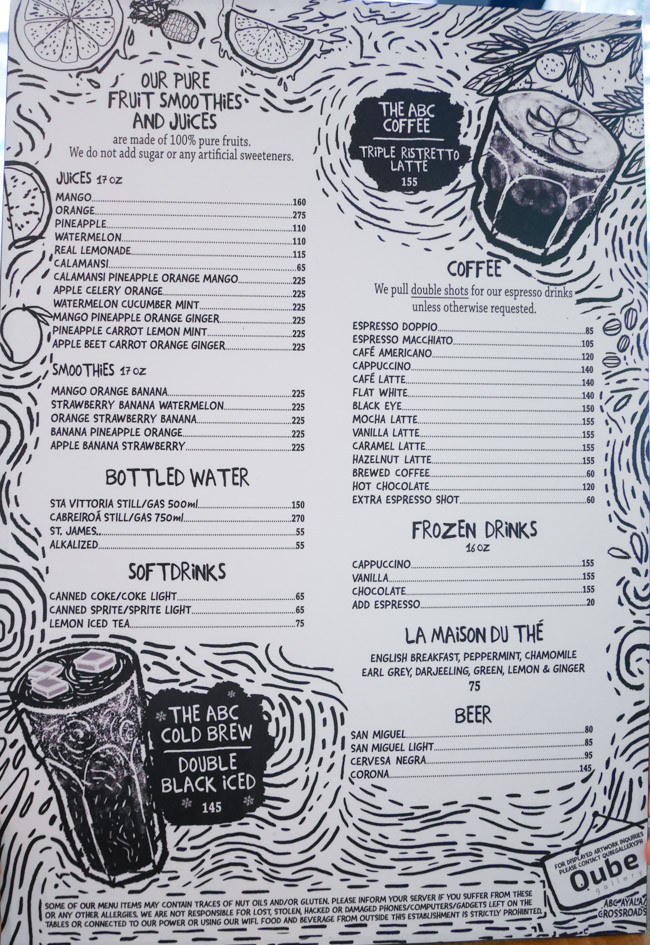 OUR PURE
FRUIT SMOOTHIES
AND JUICES
are made of 100% pure fruits.
We do not add sugar or any artificial sweeteners.
JUICES 17 OZ
MANGO 160
ORANGE 275
PINEAPPLE 110
WATERMELON 110
REAL LEMONADE 115
CALAMANSI 65
CALAMANSI PINEAPPLE ORANGE MANGO 225
APPLE CELERY ORANGE 225
WATERMELON CUCUMBER MINT 225
MANGO PINEAPPLE ORANGE GINGER 225
PINEAPPLE CARROT LEMON MINT 225
APPLE BEET CARROT ORANGE GINGER 225
SMOOTHIES 17 OZ
MANGO ORANGE BANANA 225
STRAWBERRY BANANA WATERMELON 225
ORANGE STRAWBERRY BANANA 225
BANANA PINEAPPLE ORANGE 225
APPLE BANANA STRAWBERRY 225
BOTTLED WATER
STA VITTORIA STILL/GAS 500ml 150
CABREIROÁ STILL/GAS 750ml 270
ST. JAMES 55
ALKALIZED 55
SOFTDRINKS
CANNED COKE/COKE LIGHT 65
CANNED SPRITE/SPRITE LIGHT 65
LEMON ICED TEA 75
THE ABC
COLD BREW
DOUBLE
BLACK ICED
145
THE ABC
COFFEE
TRIPLE RISTRETTO
LATTE
155
COFFEE
We pull double shots for our espresso drinks
unless otherwise requested.
ESPRESSO DOPPIO 85
ESPRESSO MACCHIATO 105
CAFÉ AMERICANO 120
CAPPUCCINO 140
CAFÉ LATTE 140
FLAT WHITE 140
BLACK EYE 150
MOCHA LATTE 155
VANILLA LATTE 155
CARAMEL LATTE 155
HAZELNUT LATTE 155
BREWED COFFEE 60
HOT CHOCOLATE 120
EXTRA ESPRESSO SHOT 60
FROZEN DRINKS
16 OZ
CAPPUCCINO 155
VANILLA 155
CHOCOLATE 155
ADD ESPRESSO 20
LA MAISON DU THÉ
ENGLISH BREAKFAST, PEPPERMINT, CHAMOMILE
EARL GREY, DARJEELING, GREEN, LEMON & GINGER
75
BEER
SAN MIGUEL 80
SAN MIGUEL LIGHT 85
CERVESA NEGRA 95
CORONA 145
FOR DISPLAYED ARTWORK INQUIRIES
PLEASE CONTACT QUBEGALLERYPH
Qube
gallery
ABC*AYALA/
CROSSROADS
SOME OF OUR MENU ITEMS MAY CONTAIN TRACES OF NUT OILS AND/OR GLUTEN. PLEASE INFORM YOUR SERVER IF YOU SUFFER FROM THESE
OR ANY OTHER ALLERGIES. WE ARE NOT RESPONSIBLE FOR LOST, STOLEN, HACKED OR DAMAGED PHONES/COMPUTERS/GADGETS LEFT ON THE
TABLES OR CONNECTED TO OUR POWER OR USING OUR WIFI, FOOD AND BEVERAGE FROM OUTSIDE THIS ESTABLISHMENT IS STRICTLY PROHIBITED.